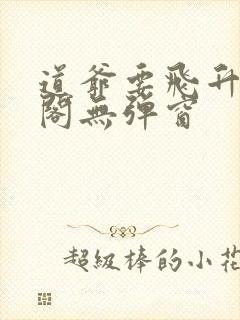 道爺要飛升
閣無彈窗
超級棒的小花